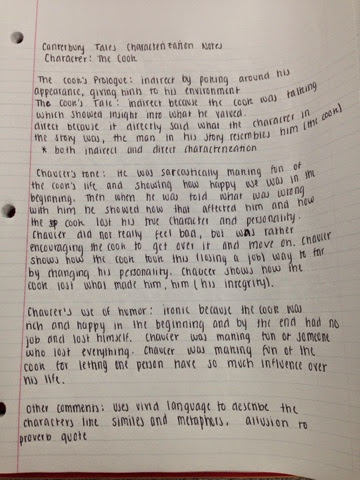 Canterbury Tales Characterization Notes
Character: The Cook
The Cook's Prologue: indirect by poking around his
appearance, giving hints to his environment
The Cook's Tale: indirect because the cook was talking
which showed insight into what he valued.
direct because it directly said what the character in
the story was, the man in his story resembles him (the cook)
* both indirect and direct characterization
Chaucer's tone: He was sarcastically making fun of
the cook's life and showing how happy we was in the
beginning. Then when he was told what was wrong
with him he showed how that affected him and how
the cook lost his true character and personality.
Chaucer did not really feel bad, but was rather
encouraging the cook to get over it and move on. Chaucer
shows how the cook took this (losing a job) way to far
by changing his personality. Chaucer shows how the
cook lost what made him, him (his integrity).
Chaucer's use of humor: ironic because the cook was
rich and happy in the beginning and by the end had no
job and lost himself. Chaucer was making fun of someone
who lost everything. Chaucer was making fun of the
cook for letting one person have so much influence over
his life.
Other comments: uses vivid language to describe the
characters like similes and metaphors. allusion to
proverb quote